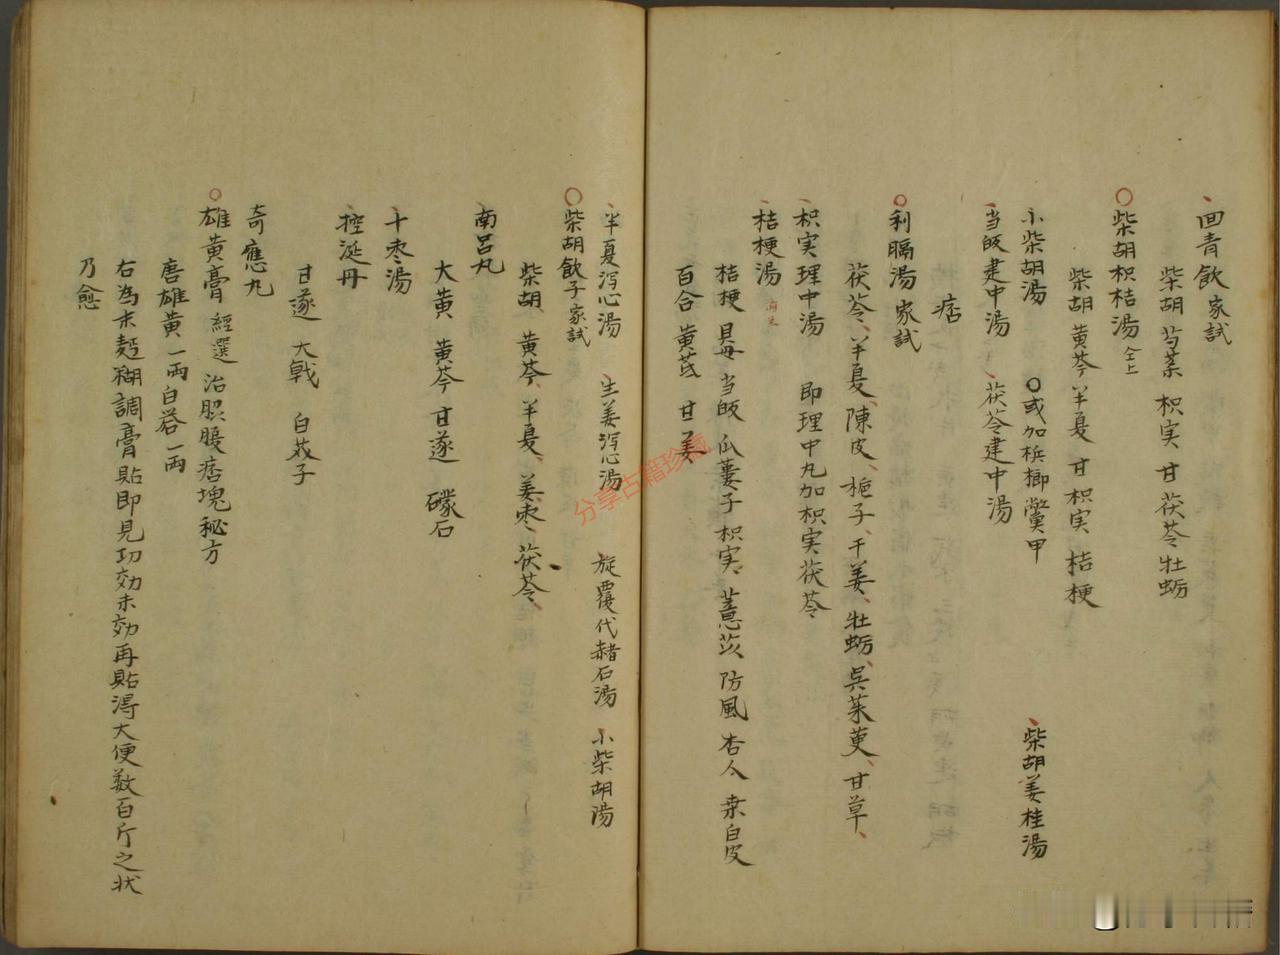 回青飲 家試
柴胡 芍薬 枳実 甘 茯苓 牡蛎
柴胡枳桔湯 仝上
柴胡 黄芩 半夏 甘 枳実 桔梗
小柴胡湯 或加梹榔鱉甲 柴胡姜桂湯
当皈建中湯 茯苓建中湯
痞
利膈湯 家試
茯苓、半夏、陳皮、梔子、干姜、牡蛎、呉茱萸、甘草、
枳実理中湯 即理中丸加枳実茯苓
桔梗湯 済生
桔梗 貝母 当皈 瓜蔞子 枳実 薏苡 防風 杏人 桒白皮
百合 黄茋 甘 姜
半夏瀉心湯 生姜瀉心湯 旋覆代赭石湯 小柴胡陽
柴胡飲子 家試
柴胡、黄芩、半夏、姜、枣、茯苓、
南呂丸
大黄 黄芩 甘遂 礞石
十枣湯
控涎丹
甘遂 大戟 白芥子
奇應丸
雄黄膏 経選 治腹痞塊秘方
唐雄黄一両 白一両
右為末麪糊調膏貼即見功効未効再貼得大便数百斤之状
乃愈
分享古籍珍藏